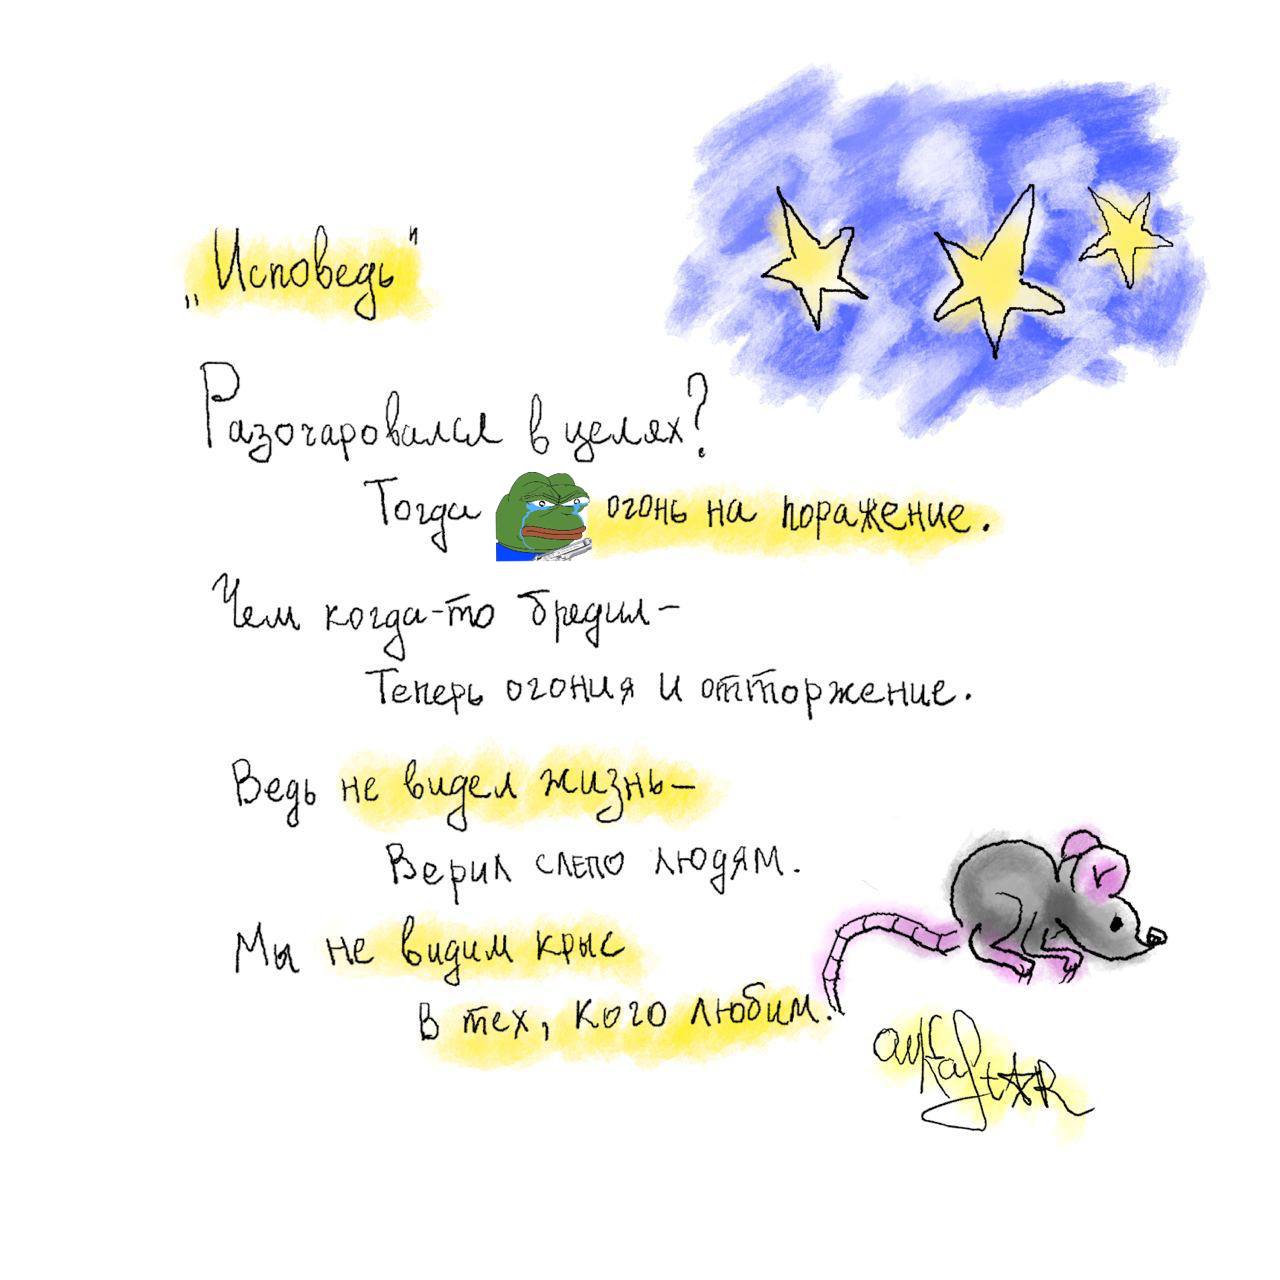 „Исповедь"
Разочаровался в целях?
Тогда огонь на поражение.
Чем когда-то бредил-
Теперь огония и отторжение.
Ведь не видел жизнь-
Верил слепо людям.
Мы не видим крыс
в тех, кого любим.